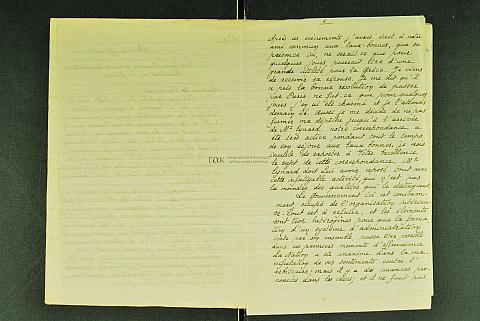 Après ces événements j'avais écrit à notre
ami commun aux Eaux-Bonnes, que sa
présence ici, ne serait-ce que pour
quelques jours pourrait être d'une
grande utilité pour la Grèce. Je viens
de recevoir sa réponse. Il me dit qu'il
a pris la bonne résolution de passer
par Paris ne fut-ce que pour quelques
jours. J'en ai été charmé et je l'attends
demain. Aussi je me décide de ne pas
fermer ma dépêche jusqu'à l'arrivée
de Mr Eynard, notre correspondance a
été très active pendant tout le temps
de son séjour aux Eaux bonnes, je crois
inutile de rapporter à Votre Excellence
le sujet de cette correspondance, Mr
Eynard doit Lui avoir exposé tout avec
cette infatigable activité, qui n'est pas
la moindre des qualités qui le distinguent.
Le Gouvernement ici est constam-
ment occupé de l'organisation intérieu-
re. Tout est à refaire, et les éléments
sont trop hétérogènes pour que la forma-
tion d'un système d'administration
forte par son ensemble, puisse être possible
dans ces premiers moments d'effervescence
La Nation a été unanime dans la ma-
nifestation de ses sentiments contre l'
arbitraire; mais il y a des nuances pro-
noncées dans les idées; et il ne faut pas
ΓΑΚ